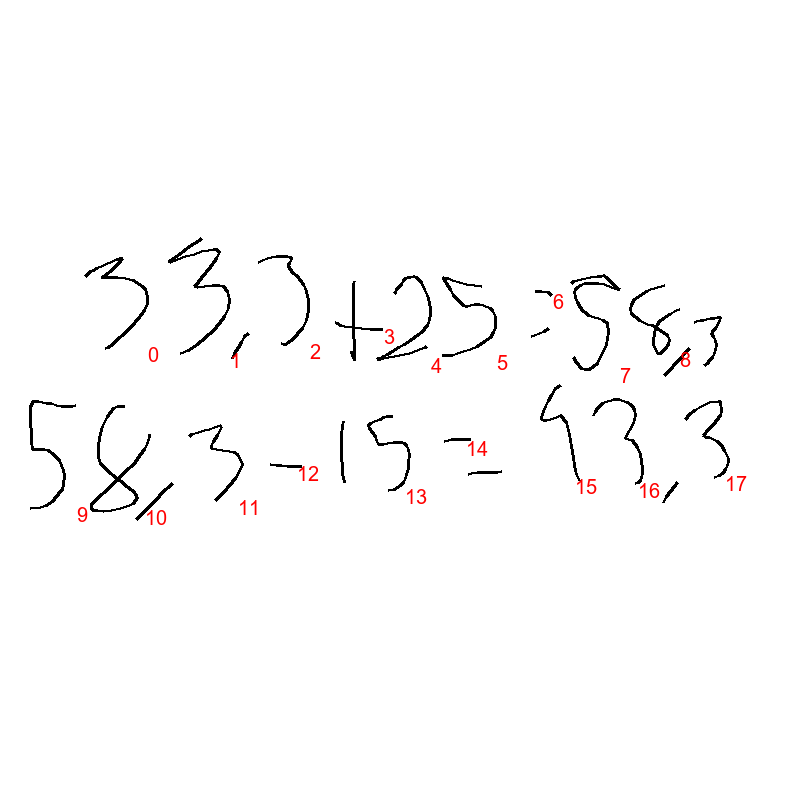 33,3+25=58,3
0 1 2 3 4 5 6 7 8
58,3-15=43,3
9 10 11 12 13 14 15 16 17